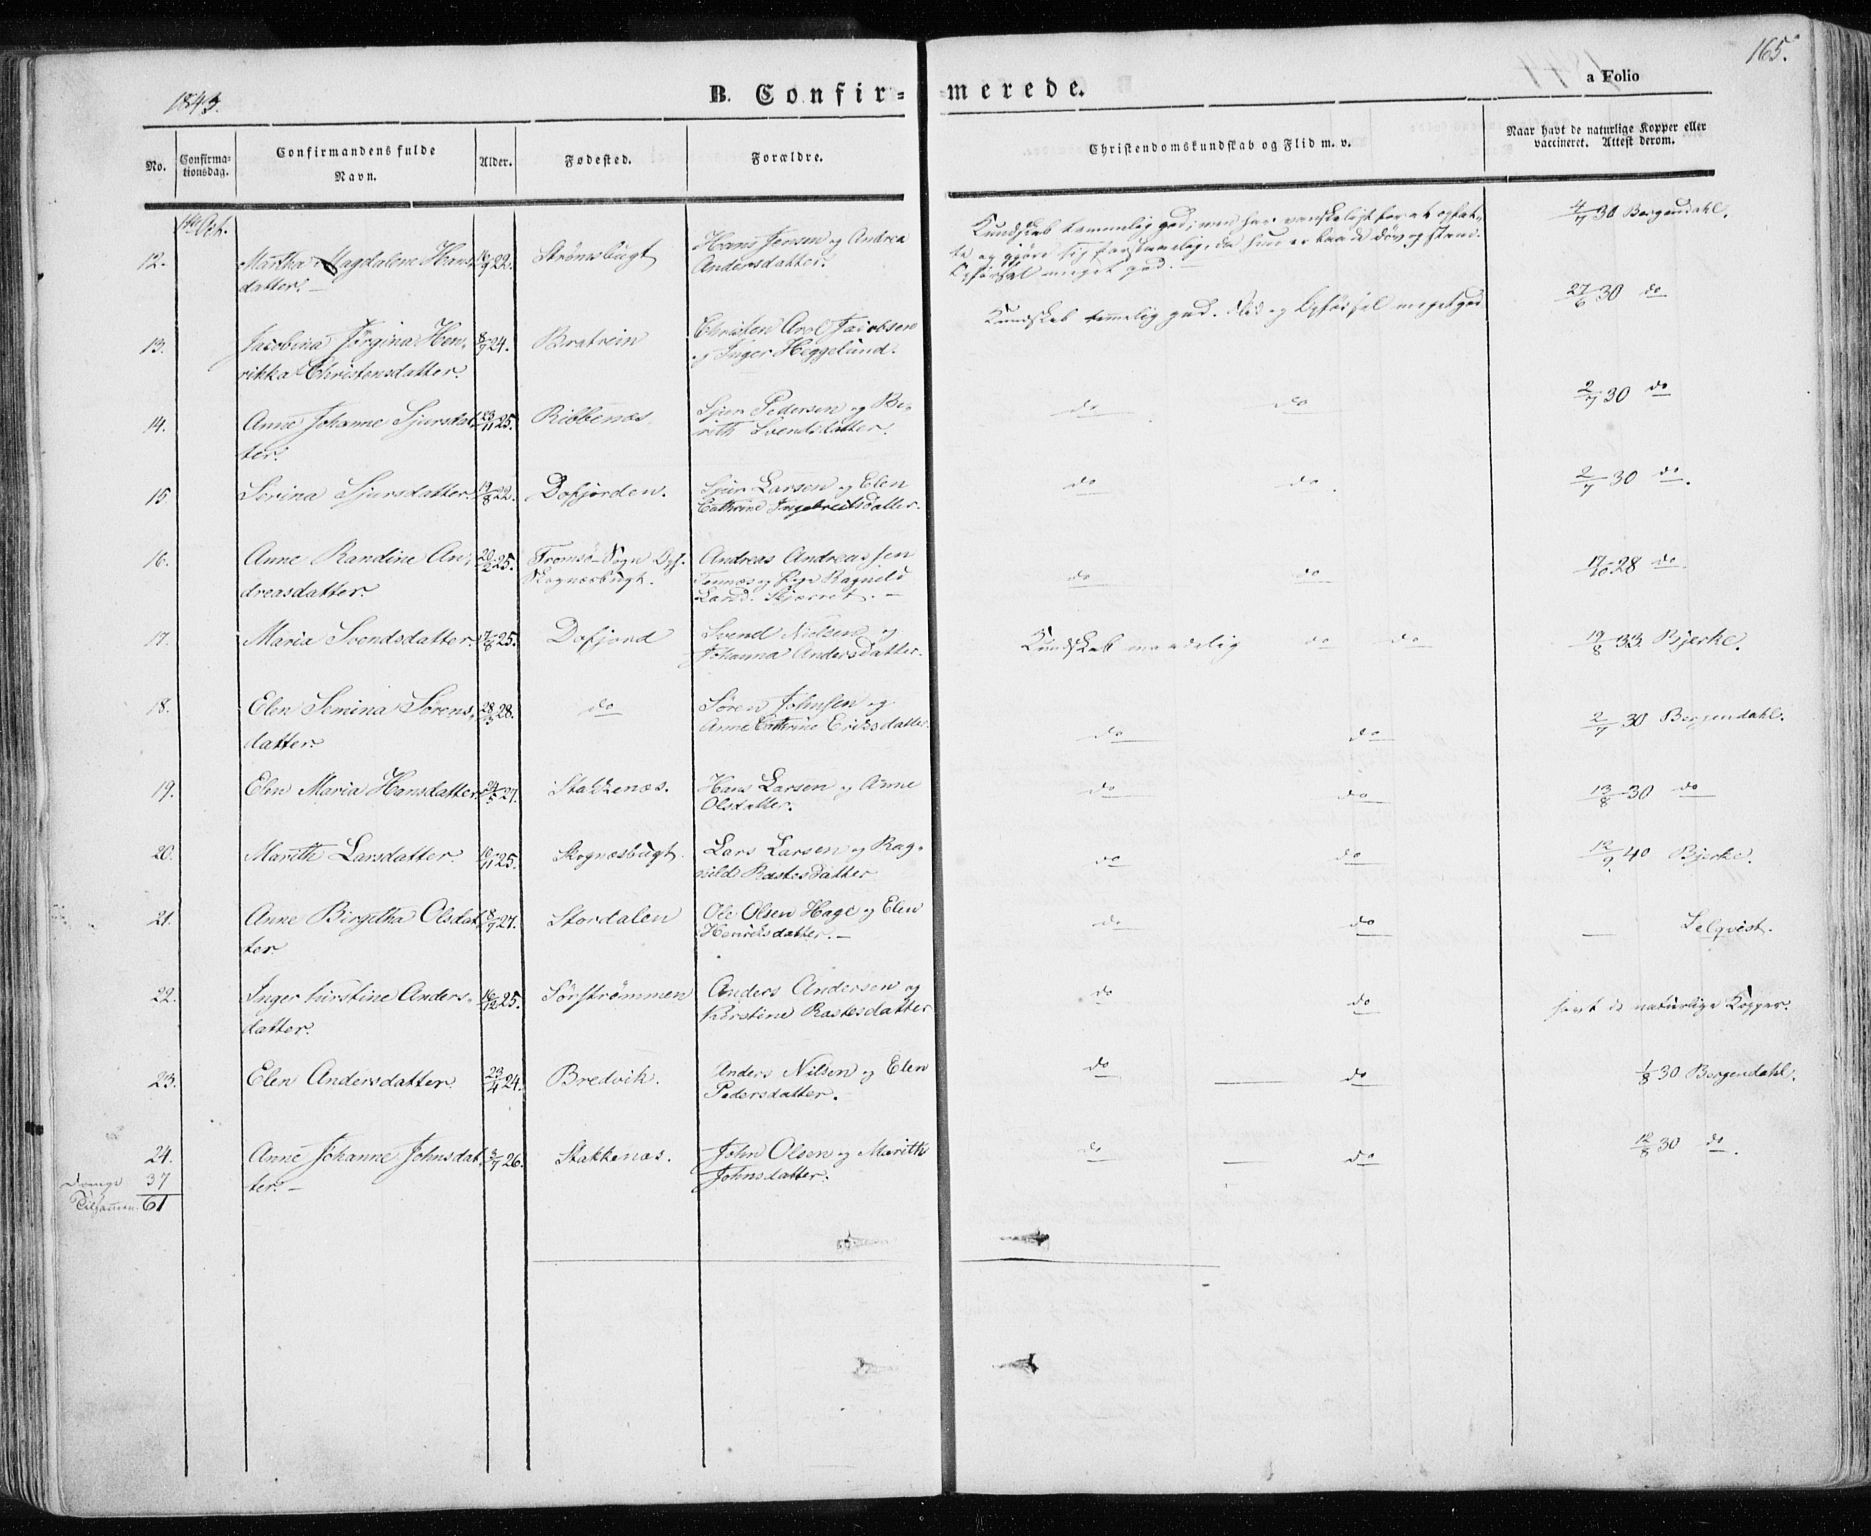 1843.
B. Confir-
merede.
a Folio
165.
No.
Confirma-
tionsdag.
Confirmandens fulde
Navn.
Alder.
Fødested.
Forældre.
Christendomskundskab og Flid m. v.
Naar havt de naturlige Kopper eller
vaccineret. Attest derom.
1ste Oct.
12. Martha Magdalene Hans- 16/9 22. Strømsbugt Hans Jensen og Andrea
datter.- Andersdatter.
Kundskab temmelig god, men har vanskeligt for at opfat-
te og gjøre sig forstaaelig, da hun er baade døv og stam.
Opførsel meget god.-
4/7 30 Bergendahl.
13. Jacobina Jørgina Hen- 8/9 24. Bratrein Christen Arol Jacobsen
rikka Christensdatter. og Inger Heggelund.
Kundskab temmelig god. Flid og Opførsel meget god
27/6 30 do
14. Anne Johanne Sjursdat- 23/11 25. Ribbenæs. Sjur Pedersen og Be-
ter. rith Svendsdatter.
do do 2/7 30 do
15 Serina Sjursdatter. 19/8 22. Dofjorden. Sjur Larsen og Elen
Cathrine Ingebreitsdatter.
do do. 2/7 30 do.
16. Anne Randine An- 20/2 25. Tromsø Sogn
dreasdatter. Skognæsbugt. Andreas Andreassen
Tennæs og Pige Ragnild
Land. Skjærret.-
do do 17/10 28 do.
17. Maria Svendsdatter. 17/8 25. Dofjord Svend Nielsen og
Johanna Andersdatter.
Kundskab maadelig do do 19/8 33. Bjerke.
18. Elen Semina Sørens- 28/3 28. do Søren Johnsen og
datter. Anne Cathrine Eriksdatter.
do do 2/7 30 Bergendahl.
19. Elen Maria Hansdatter 24/5 27. Stakkenæs. Hans Larsen og Anne
Olsdatter.
do do 13/8 30 do
20. Marith Larsdatter. 10/11 25. Skognæsbugt. Lars Larsen og Rag-
nild Rastesdatter
do do 12/9 40 Bjerke.
21. Anne Birgitha Olsdat- 8/9 27. Stordalen Ole Olsen Hage og Elen
ter Henriksdatter.-
do do — Selqvist.
22. Inger kirstine Anders- 16/12 25. Sørstrømmen Anders Andersen og
datter. Kirstine Rastesdatter
do do havt de naturlige Kopper.
23. Elen Andersdatter. 23/4 24. Bredvik. Anders Nilsen og Elen
Pedersdatter.
do — do 1/8 30 Bergendahl.
24. Anne Johanne Johnsdat- 3/7 26. Stakkenæs. John Olsen og Marith
ter.- Johnsdatter.
do — do 12/8 30 do.
Drenge 37
Tilsammen. 61